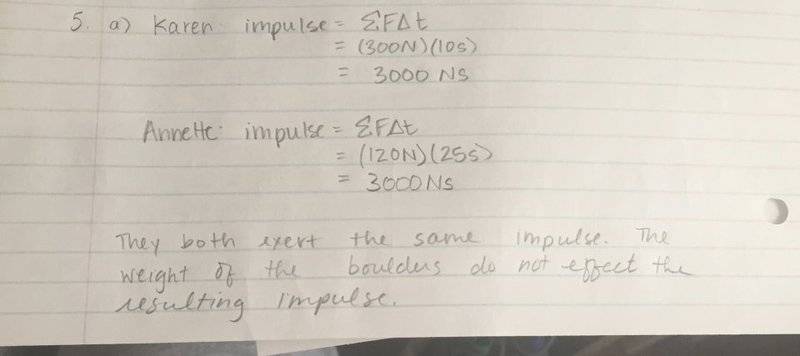 5. a) Karen: impulse = ΣFΔt
= (300N)(10s)
= 3000 Ns
Annette: impulse = ΣFΔt
= (120N)(25s)
= 3000Ns
They both exert the same impulse. The
weight of the boulders do not effect the
resulting impulse.